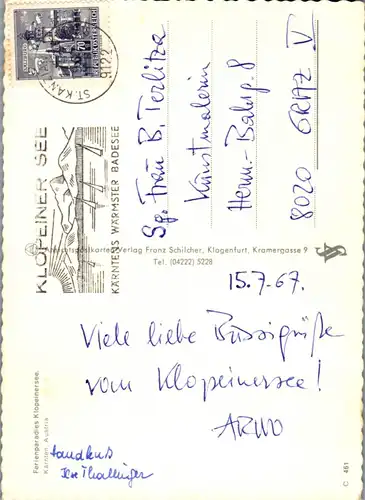 REPUBLIK ÖSTERREICH
70
9122
ST. KAN
KLOPEINER SEE
KÄRNTENS WÄRMSTER BADESEE
Sg. Frau B. Terlitza
Kunstmalerin
Herm.-Bahrg. 8
8020 GRAZ V
Ansichtspostkarten-Verlag Franz Schilcher, Klagenfurt, Kramergasse 9
Tel. (04222) 5228
15.7.67.
Viele liebe Bussigrüße
vom Klopeinersee!
ARNO
Handkuß
Ferienparadies Klopeinersee.
Kärnten, Austria
C 461